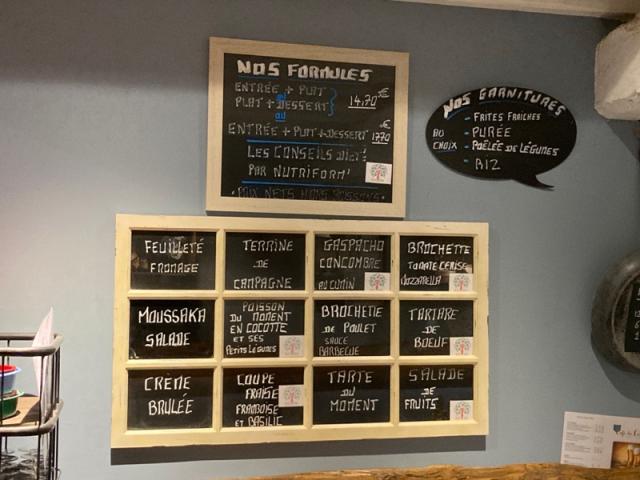 NOS FORMULES
ENTRÉE + PLAT
ou
PLAT + DESSERT
14,70 €
ou
ENTRÉE + PLAT + DESSERT 1770 €
LES CONSEILS DIET:
PAR NUTRIFORM'
PRIX NETS HORS BOISSONS
NOS GARNITURES
AU CHOIX
- FRITES FRAICHES
- PURÉE
- POÊLÉE DE LÉGUMES
- RIZ
FEUILLETÉ
FROMAGE
TERRINE
DE
CAMPAGNE
GASPACHO
CONCOMBRE
AU CUMIN
BROCHETTE
TOMATE CERISE
MOZZARELLA
MOUSSAKA
SALADE
POISSON
DU MOMENT
EN COCOTTE
ET SES
PETITS LÉGUMES
BROCHETTE
DE POULET
SAUCE
BARBECUE
TARTARE
DE
BOEUF
CRÈME
BRULÉE
COUPE
FRAISE
FRAMBOISE
ET BASILIC
TARTE
DU
MOMENT
SALADE
DE
FRUITS